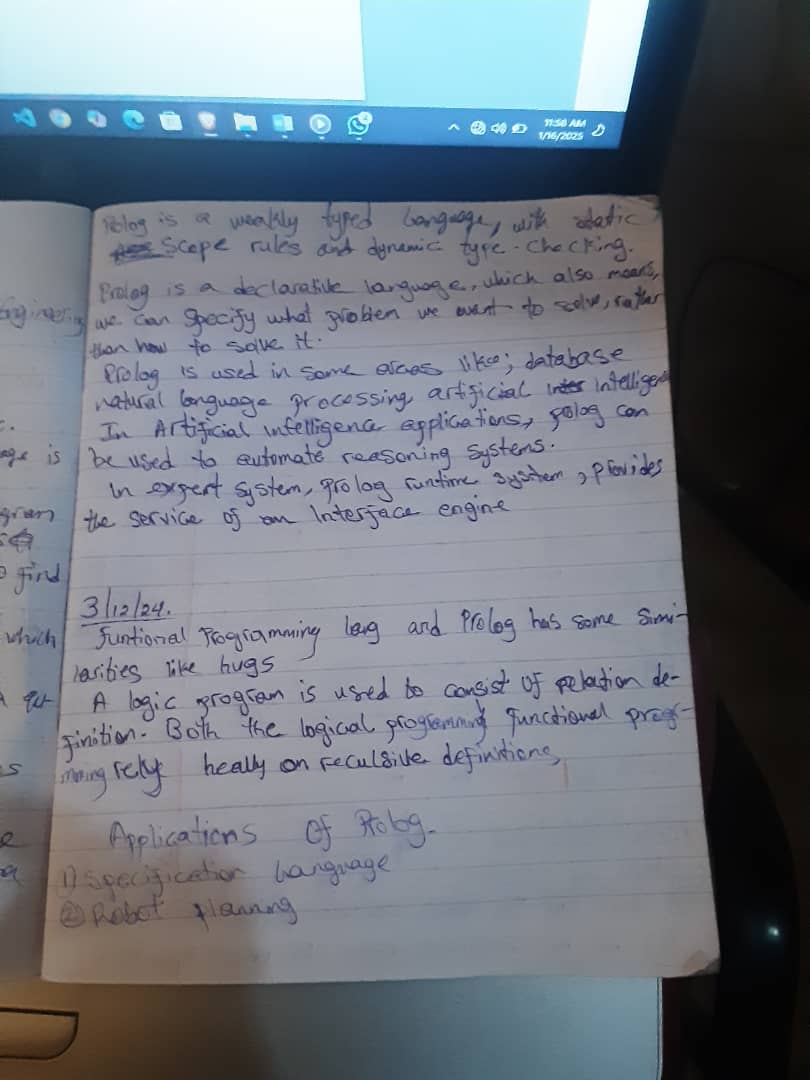 11:58 AM
1/16/2025
Polog is a weakly typed language, with static
Scope rules and dynamic type-checking.
Prolog is a declarative language, which also means,
we can specify what problem we want to solve, rather
than how to solve it.
Prolog is used in some areas like; database
natural language processing, artificial intelligence
In Artificial intelligence applications, polog can
be used to automate reasoning systems.
In expert system, prolog runtime system, provides
the service of an Interface engine
3/12/24.
Funtional Programming lang and Prolog has some simi-
larities like hugs
A logic program is used to consist of relation de-
finition. Both the logical programming functional prog-
mming rely heally on reculsive definitions,
Applications of Prolog.
1) Specification language
2) Robot planning
age is
gram
find
which